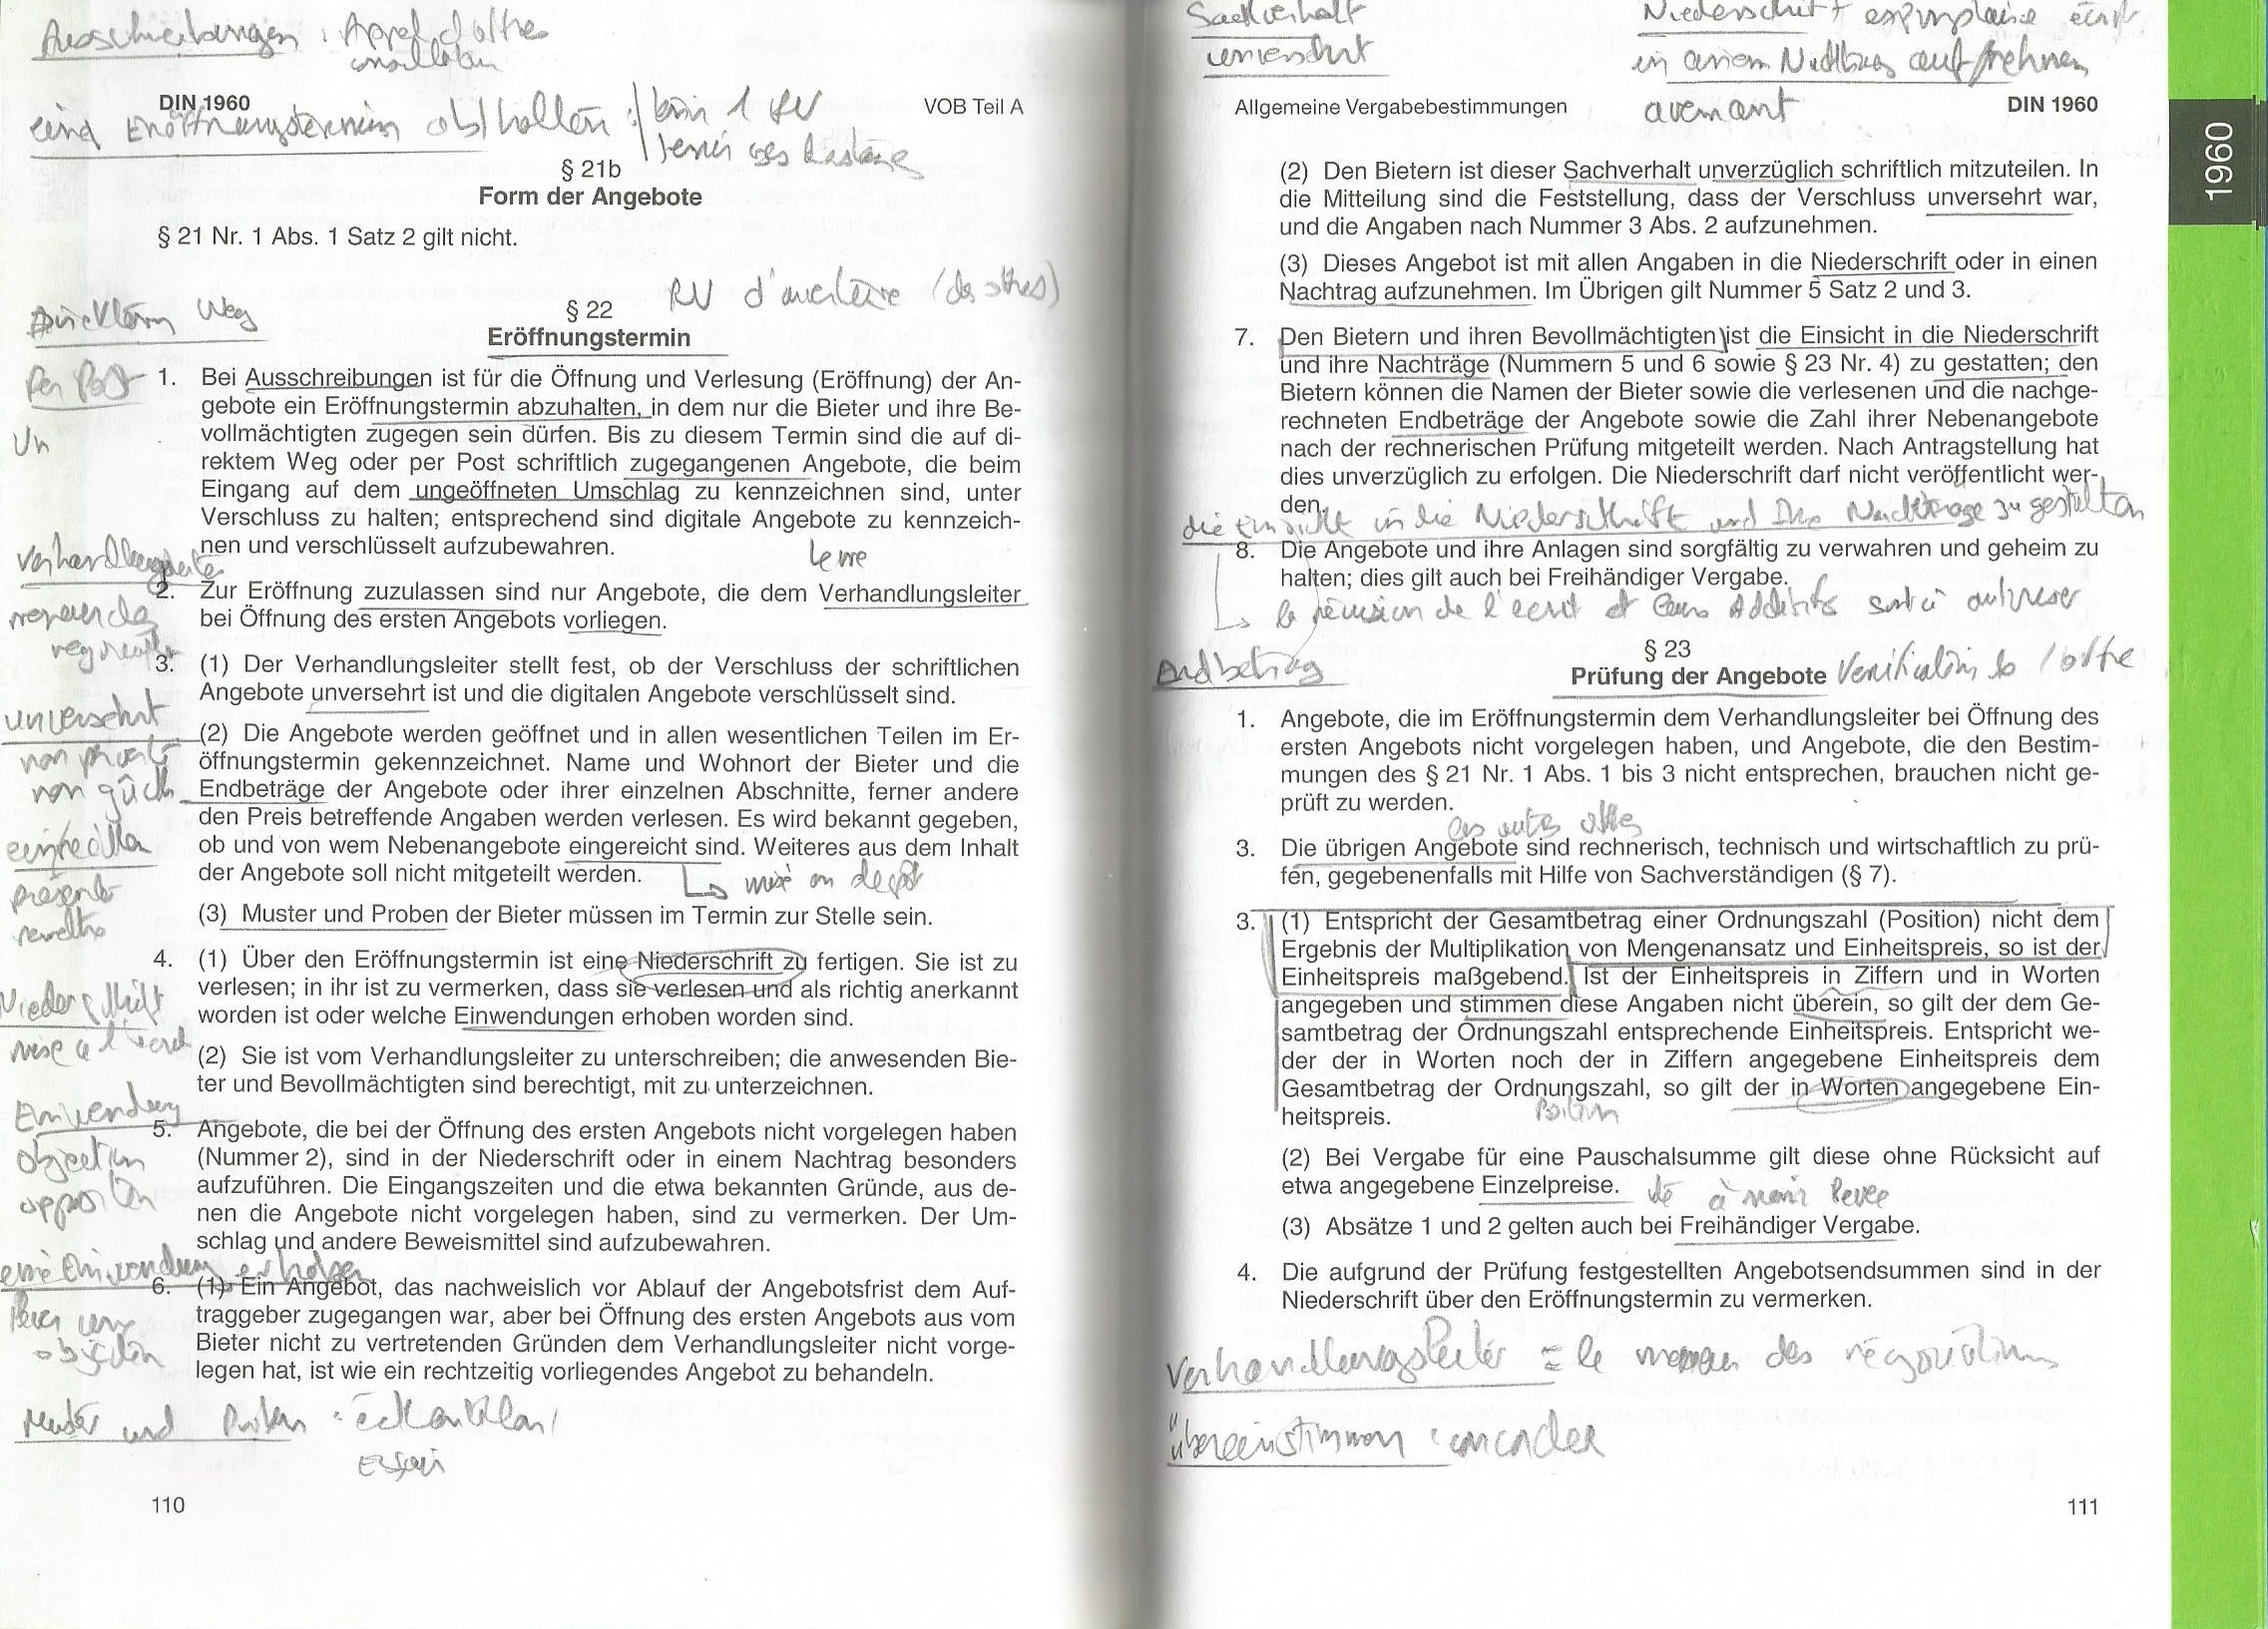 Ausschreibungen : Appel d'offre
DIN 1960
VOB Teil A
ein Eröffnungstermin abhalten :
§ 21b
Form der Angebote
§ 21 Nr. 1 Abs. 1 Satz 2 gilt nicht.
RV d'ouverture (des offres)
§ 22
Eröffnungstermin
Weg
Per Post
Un
1. Bei Ausschreibungen ist für die Öffnung und Verlesung (Eröffnung) der An-
gebote ein Eröffnungstermin abzuhalten, in dem nur die Bieter und ihre Be-
vollmächtigten zugegen sein dürfen. Bis zu diesem Termin sind die auf di-
rektem Weg oder per Post schriftlich zugegangenen Angebote, die beim
Eingang auf dem ungeöffneten Umschlag zu kennzeichnen sind, unter
Verschluss zu halten; entsprechend sind digitale Angebote zu kennzeich-
nen und verschlüsselt aufzubewahren.
Verhandlungsleiter
2. Zur Eröffnung zuzulassen sind nur Angebote, die dem Verhandlungsleiter
bei Öffnung des ersten Angebots vorliegen.
3. (1) Der Verhandlungsleiter stellt fest, ob der Verschluss der schriftlichen
Angebote unversehrt ist und die digitalen Angebote verschlüsselt sind.
unversehrt
(2) Die Angebote werden geöffnet und in allen wesentlichen Teilen im Er-
öffnungstermin gekennzeichnet. Name und Wohnort der Bieter und die
Endbeträge der Angebote oder ihrer einzelnen Abschnitte, ferner andere
den Preis betreffende Angaben werden verlesen. Es wird bekannt gegeben,
ob und von wem Nebenangebote eingereicht sind. Weiteres aus dem Inhalt
der Angebote soll nicht mitgeteilt werden.
(3) Muster und Proben der Bieter müssen im Termin zur Stelle sein.
4. (1) Über den Eröffnungstermin ist eine Niederschrift zu fertigen. Sie ist zu
verlesen; in ihr ist zu vermerken, dass sie verlesen und als richtig anerkannt
worden ist oder welche Einwendungen erhoben worden sind.
Niederschrift
(2) Sie ist vom Verhandlungsleiter zu unterschreiben; die anwesenden Bie-
ter und Bevollmächtigten sind berechtigt, mit zu unterzeichnen.
Einwendung
objection
5. Angebote, die bei der Öffnung des ersten Angebots nicht vorgelegen haben
(Nummer 2), sind in der Niederschrift oder in einem Nachtrag besonders
aufzuführen. Die Eingangszeiten und die etwa bekannten Gründe, aus de-
nen die Angebote nicht vorgelegen haben, sind zu vermerken. Der Um-
schlag und andere Beweismittel sind aufzubewahren.
eine Einwendung erheben
6. (1) Ein Angebot, das nachweislich vor Ablauf der Angebotsfrist dem Auf-
traggeber zugegangen war, aber bei Öffnung des ersten Angebots aus vom
Bieter nicht zu vertretenden Gründen dem Verhandlungsleiter nicht vorge-
legen hat, ist wie ein rechtzeitig vorliegendes Angebot zu behandeln.
Muster und Proben : échantillon /
essai
110
Sachverhalt
unversehrt
Niederschrift
in einem Nachtrag aufnehmen
avenant
Allgemeine Vergabebestimmungen
DIN 1960
1960
(2) Den Bietern ist dieser Sachverhalt unverzüglich schriftlich mitzuteilen. In
die Mitteilung sind die Feststellung, dass der Verschluss unversehrt war,
und die Angaben nach Nummer 3 Abs. 2 aufzunehmen.
(3) Dieses Angebot ist mit allen Angaben in die Niederschrift oder in einen
Nachtrag aufzunehmen. Im Übrigen gilt Nummer 5 Satz 2 und 3.
7. Den Bietern und ihren Bevollmächtigten ist die Einsicht in die Niederschrift
und ihre Nachträge (Nummern 5 und 6 sowie § 23 Nr. 4) zu gestatten; den
Bietern können die Namen der Bieter sowie die verlesenen und die nachge-
rechneten Endbeträge der Angebote sowie die Zahl ihrer Nebenangebote
nach der rechnerischen Prüfung mitgeteilt werden. Nach Antragstellung hat
dies unverzüglich zu erfolgen. Die Niederschrift darf nicht veröffentlicht wer-
den.
die Einsicht in die Niederschrift und Ihre Nachträge zu gestatten
8. Die Angebote und ihre Anlagen sind sorgfältig zu verwahren und geheim zu
halten; dies gilt auch bei Freihändiger Vergabe.
la révision de l'écrit et leurs additifs sont à autoriser
Endbetrag
§ 23
Prüfung der Angebote
1. Angebote, die im Eröffnungstermin dem Verhandlungsleiter bei Öffnung des
ersten Angebots nicht vorgelegen haben, und Angebote, die den Bestim-
mungen des § 21 Nr. 1 Abs. 1 bis 3 nicht entsprechen, brauchen nicht ge-
prüft zu werden.
les autres offres
3. Die übrigen Angebote sind rechnerisch, technisch und wirtschaftlich zu prü-
fen, gegebenenfalls mit Hilfe von Sachverständigen (§ 7).
3. (1) Entspricht der Gesamtbetrag einer Ordnungszahl (Position) nicht dem
Ergebnis der Multiplikation von Mengenansatz und Einheitspreis, so ist der
Einheitspreis maßgebend. Ist der Einheitspreis in Ziffern und in Worten
angegeben und stimmen diese Angaben nicht überein, so gilt der dem Ge-
samtbetrag der Ordnungszahl entsprechende Einheitspreis. Entspricht we-
der der in Worten noch der in Ziffern angegebene Einheitspreis dem
Gesamtbetrag der Ordnungszahl, so gilt der in Worten angegebene Ein-
heitspreis.
(2) Bei Vergabe für eine Pauschalsumme gilt diese ohne Rücksicht auf
etwa angegebene Einzelpreise.
(3) Absätze 1 und 2 gelten auch bei Freihändiger Vergabe.
4. Die aufgrund der Prüfung festgestellten Angebotsendsummen sind in der
Niederschrift über den Eröffnungstermin zu vermerken.
Verhandlungsleiter = le meneur des négociations
übereinstimmen : concorder
111